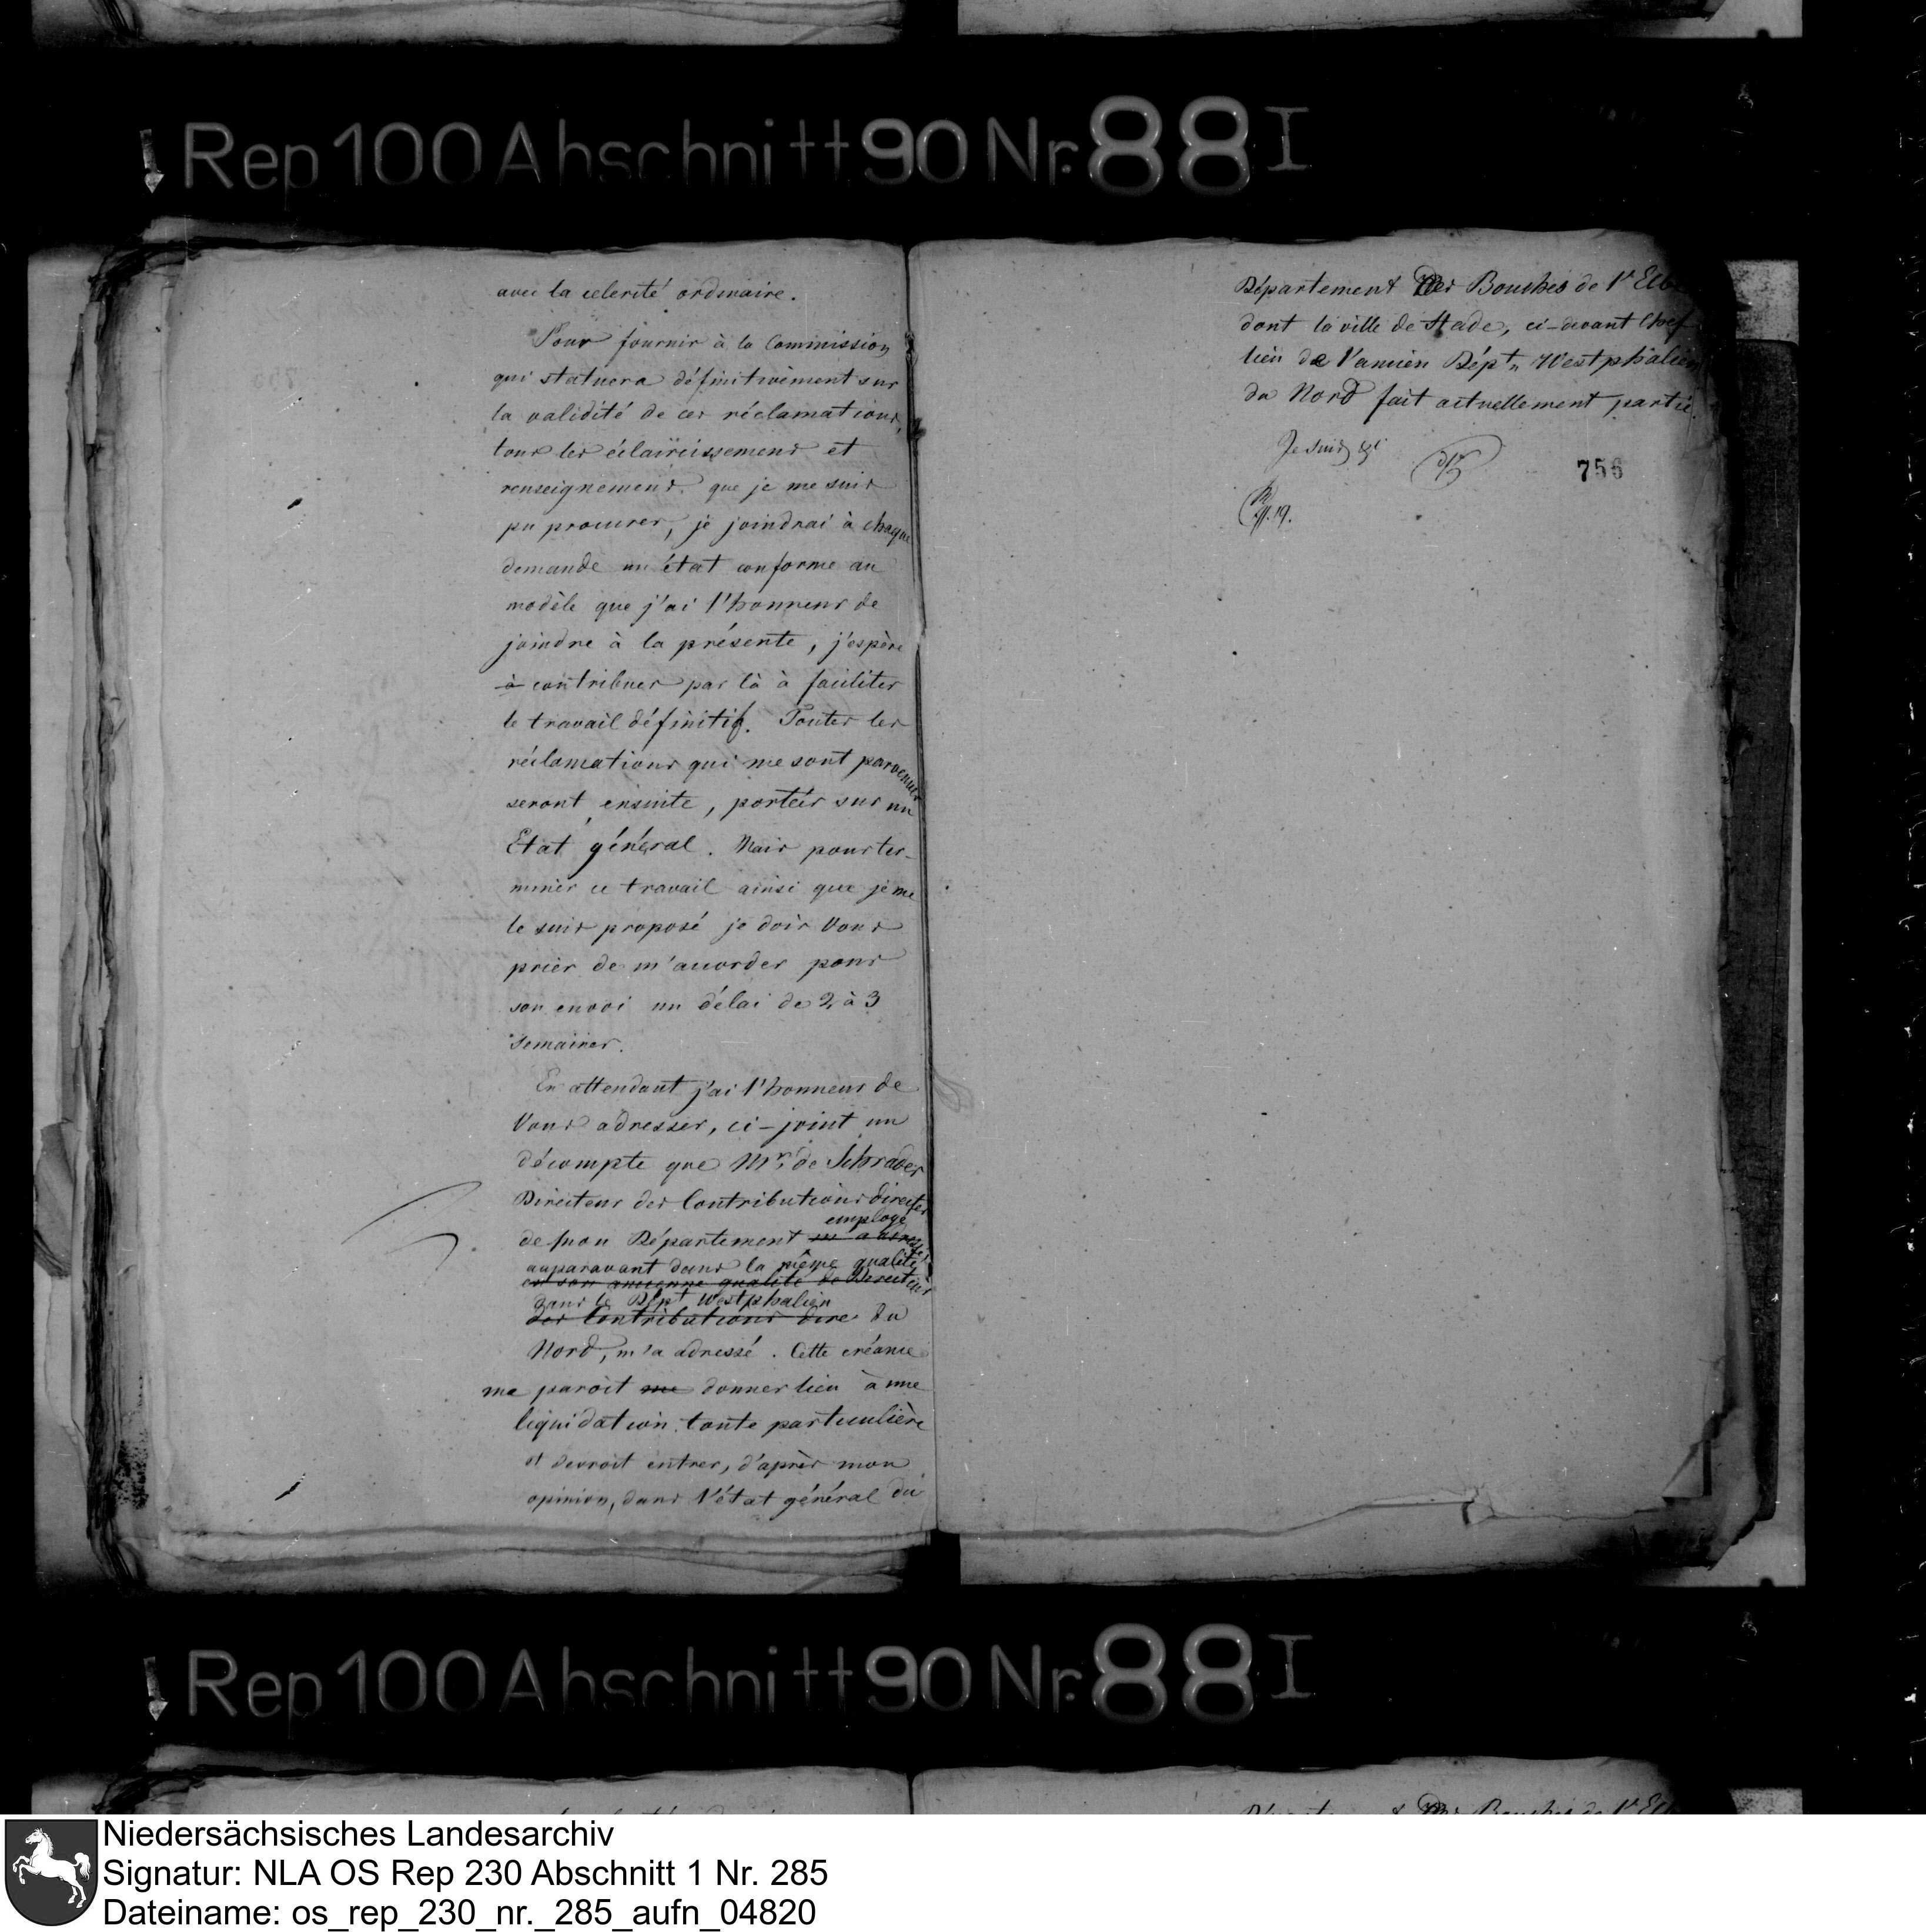 Rep 100 Abschnitt 90 Nr. 88 I
avec la celerité ordinaire.
Pour fournir à la Commission
qui statuera définitivement sur
la validité de ces réclamations,
tous les éclaircissemens et
renseignemens que je me suis
pu procurer, je joindrai à chaque
demande un état conforme au
modèle que j'ai l'honneur de
joindre à la présente, j'espère
à contribuer par là à faciliter
le travail définitif. Toutes les
réclamations qui me sont parvenues
seront, ensuite, portées sur un
Etat général. Mais pour ter-
miner ce travail ainsi que je me
le suis proposé je dois Vous
prier de m'accorder pour
son envoi un délai de 2 à 3
Semaines.
En attendant j'ai l'honneur de
Vous adresser, ci-joint un
décompte que Mr. de Schrader
Directeur des Contributions directes
employé
de mon Département m'a adressé
auparavant dans la même qualité
en son ancienne qualité de Directeur
dans le Dépt Westphalien
des Contributions dire du
Nord, m'a adressé. Cette créance
me paroit me donner lieu à une
liquidation toute particulière
et devroit entrer, d'après mon
opinion, dans l'état général du
Département des Bouches de l'Elbe
dont la ville de Stade, ci-devant Chef-
lieu de l'ancien Dépt. Westphalien
du Nord fait actuellement partie.
Je suis
756
19.
Rep 100 Abschnitt 90 Nr. 88 I
Niedersächsisches Landesarchiv
Signatur: NLA OS Rep 230 Abschnitt 1 Nr. 285
Dateiname: os_rep_230_nr._285_aufn_04820